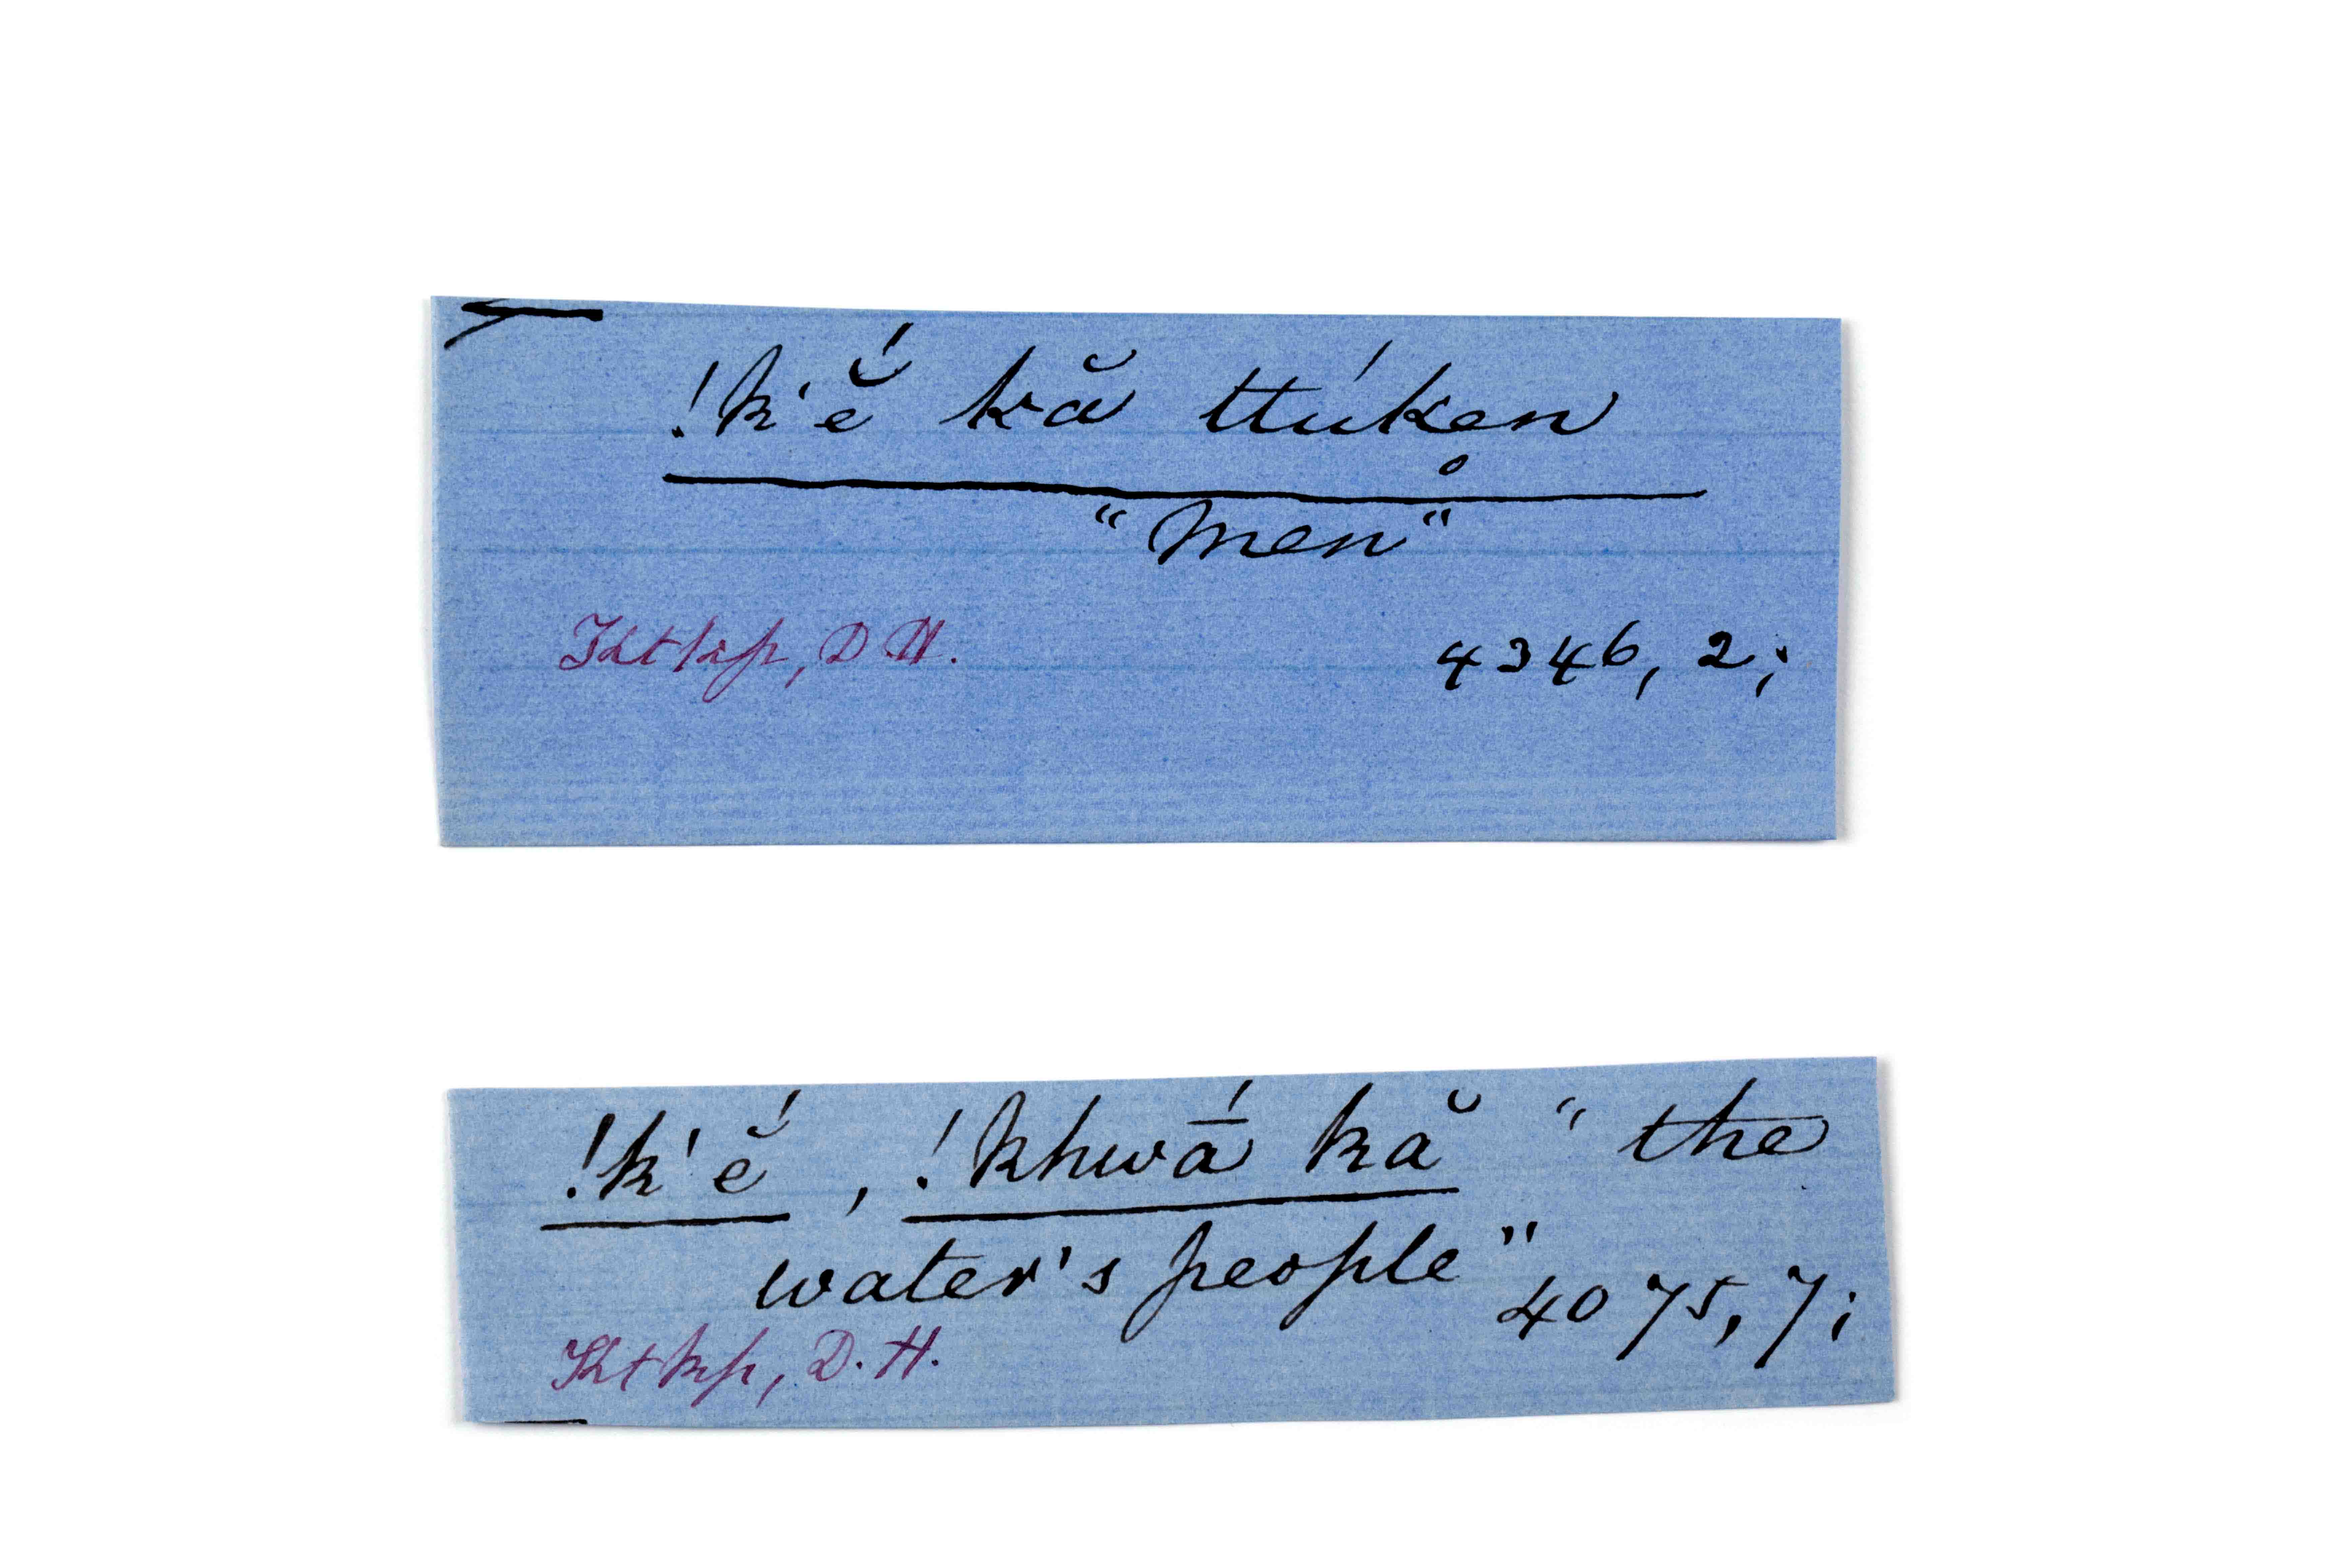 !k'ĕ́ kă ttúken̥
"men"
Kktkp, D.H.
4346, 2;
!k'ĕ́, !khwā́ kă "the
water's people"
4075, 7;
Kktkp, D.H.